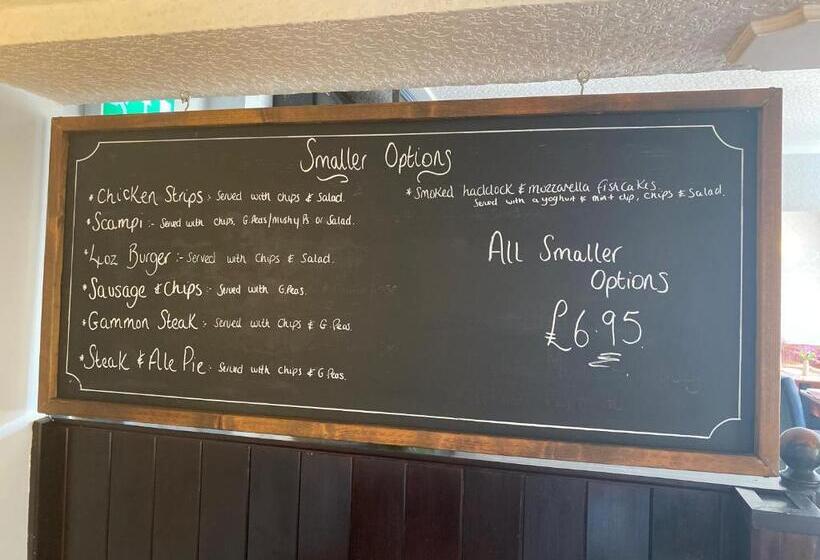 Smaller Options
*Chicken Strips :- Served with chips & Salad.
*Scampi :- Served with chips, G.Peas/Mushy Ps or Salad.
*4oz Burger :- Served with Chips & Salad.
*Sausage & Chips :- Served with G.Peas.
*Gammon Steak :- Served with Chips & G.Peas.
*Steak & Ale Pie :- Served with Chips & G.Peas.
*Smoked haddock & mozzarella fishcakes
Served with a yoghurt & mint dip, Chips & Salad.
All Smaller
Options
£6.95